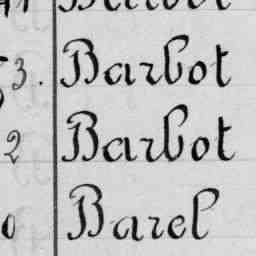 3. Barbot
2 Barbot
0 Barel